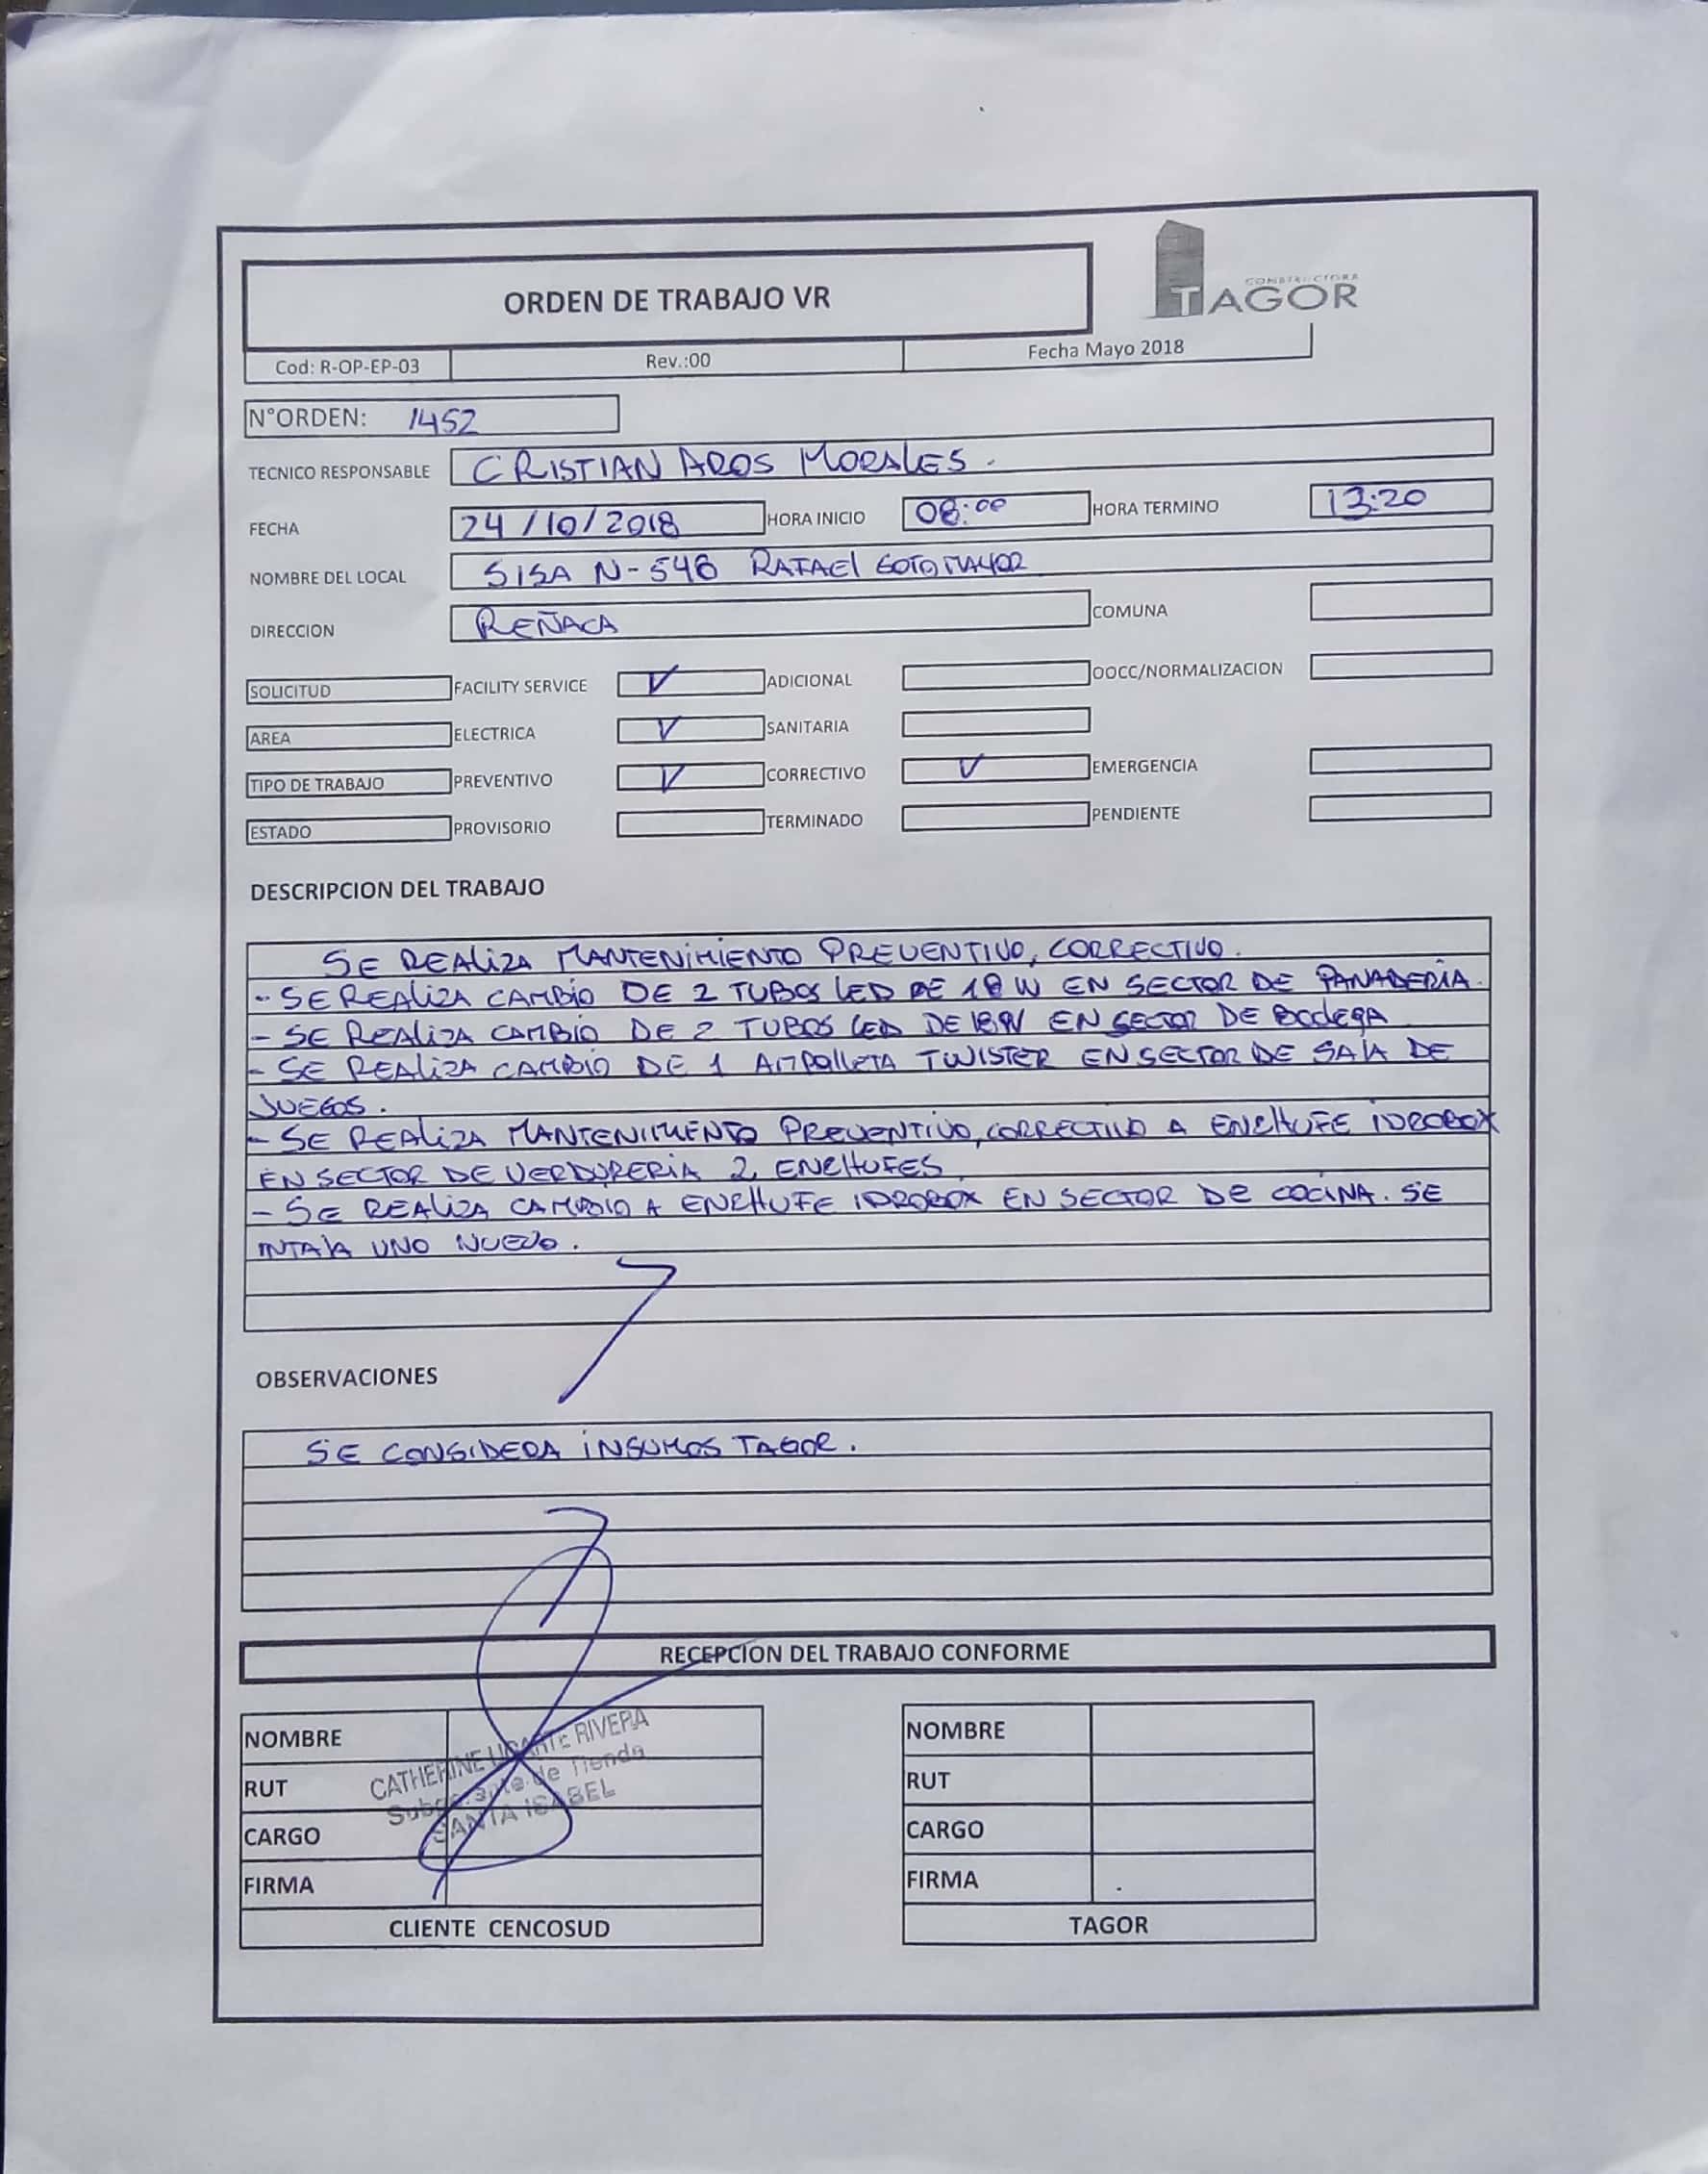 CONSTRUCTORA
TAGOR
ORDEN DE TRABAJO VR
Cod: R-OP-EP-03 Rev.:00 Fecha Mayo 2018
N°ORDEN: 1452
TECNICO RESPONSABLE CRISTIAN AROS MORALES.
FECHA 24/10/2018 HORA INICIO 08:00 HORA TERMINO 13:20
NOMBRE DEL LOCAL SISA N-548 RAFAEl SOTOMAYOR
DIRECCION REÑACA COMUNA
SOLICITUD FACILITY SERVICE ✓ ADICIONAL OOCC/NORMALIZACION
AREA ELECTRICA ✓ SANITARIA
TIPO DE TRABAJO PREVENTIVO ✓ CORRECTIVO ✓ EMERGENCIA
ESTADO PROVISORIO TERMINADO PENDIENTE
DESCRIPCION DEL TRABAJO
SE REALIZA MANTENIMIENTO PREVENTIVO, CORRECTIVO.
- SE REALIZA CAMBIO DE 2 TUBOS LED DE 18 W EN SECTOR DE PANADERIA.
- SE REALIZA CAMBIO DE 2 TUBOS LED DE 18W EN SECTOR DE BODEGA
- SE REALIZA CAMBIO DE 1 AMPOLLETA TWISTER EN SECTOR DE SALA DE
JUEGOS.
- SE REALIZA MANTENIMIENTO PREVENTIVO, CORRECTIVO A ENCHUFE IDROBOX
EN SECTOR DE VERDURERIA 2 ENCHUFES
- SE REALIZA CAMBIO A ENCHUFE IDROBOX EN SECTOR DE COCINA. SE
INTALA UNO NUEVO.
OBSERVACIONES
SE CONSIDERA INSUMOS TAGOR.
RECEPCION DEL TRABAJO CONFORME
NOMBRE
RUT
CARGO
FIRMA
CLIENTE CENCOSUD
CATHERINE UGARTE RIVERA
Subgerente de Tienda
SANTA ISABEL
NOMBRE
RUT
CARGO
FIRMA
TAGOR